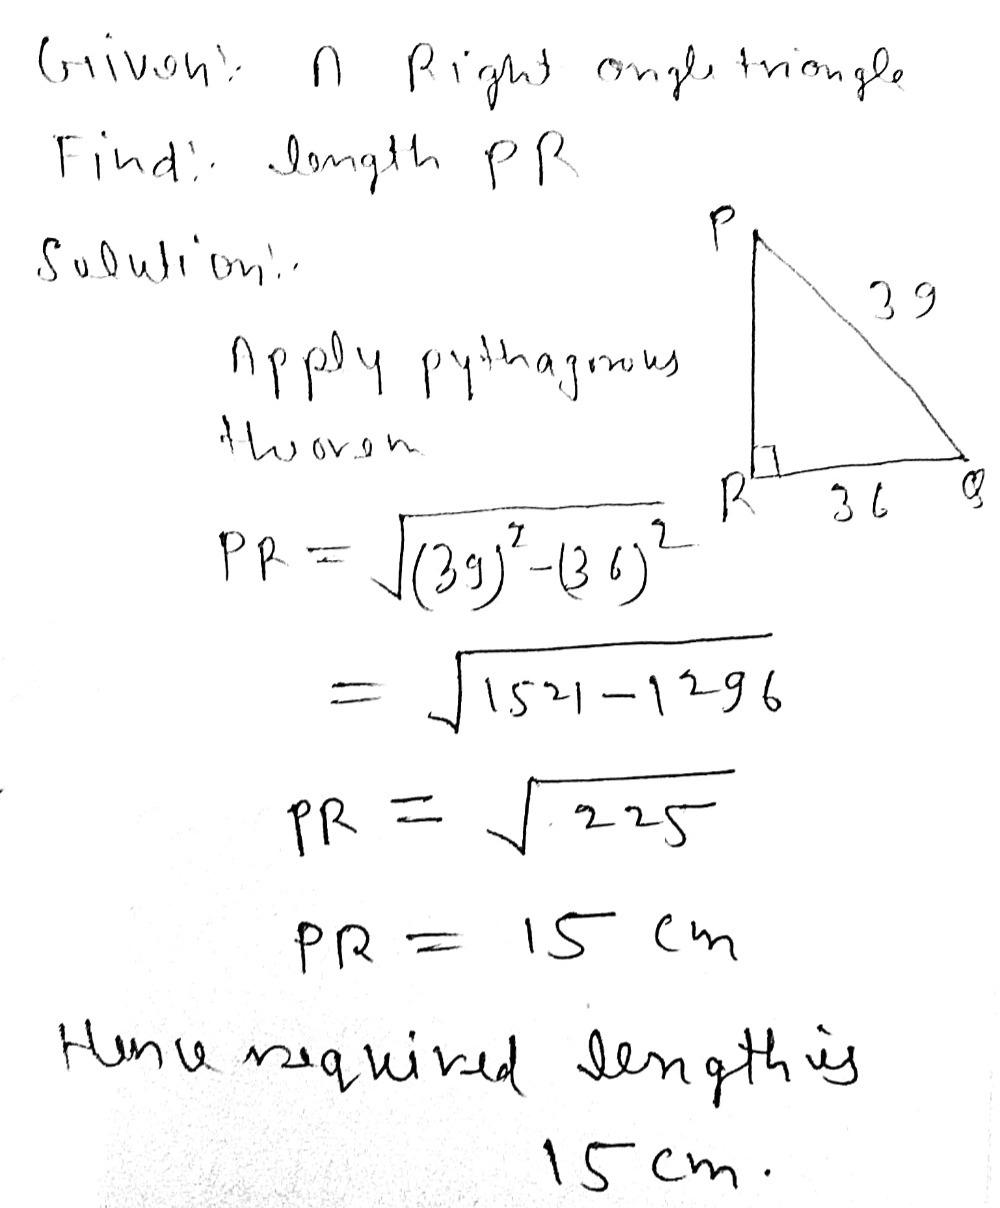 Given:- A Right angle triangle
Find:- length PR
Solution:-
P
39
Apply pythagorous
theorem
R 36 Q
PR = √(39)²-(36)²
= √1521-1296
PR = √225
PR = 15 cm
Hence required length is
15 cm.